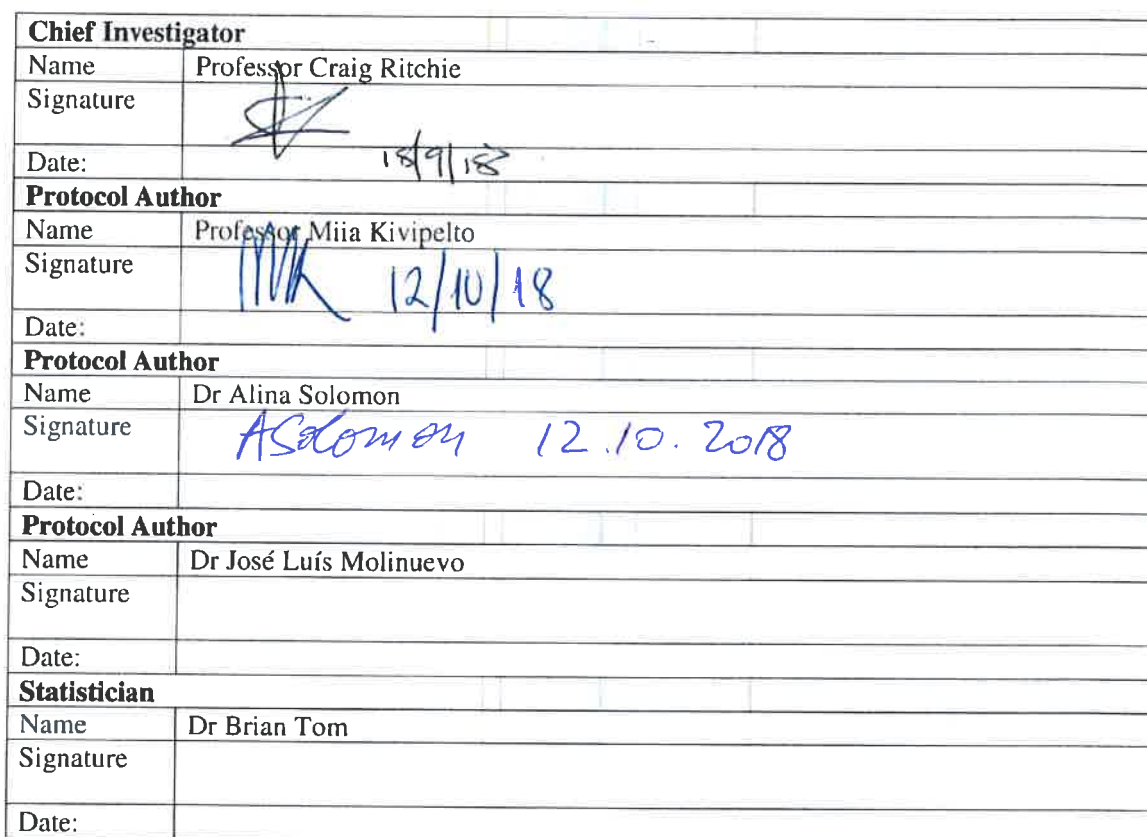 Chief Investigator
Name Professor Craig Ritchie
Signature
Date: 18/9/18
Protocol Author
Name Professor Miia Kivipelto
Signature MK 12/10/18
Date:
Protocol Author
Name Dr Alina Solomon
Signature ASolomon 12.10.2018
Date:
Protocol Author
Name Dr José Luís Molinuevo
Signature
Date:
Statistician
Name Dr Brian Tom
Signature
Date: